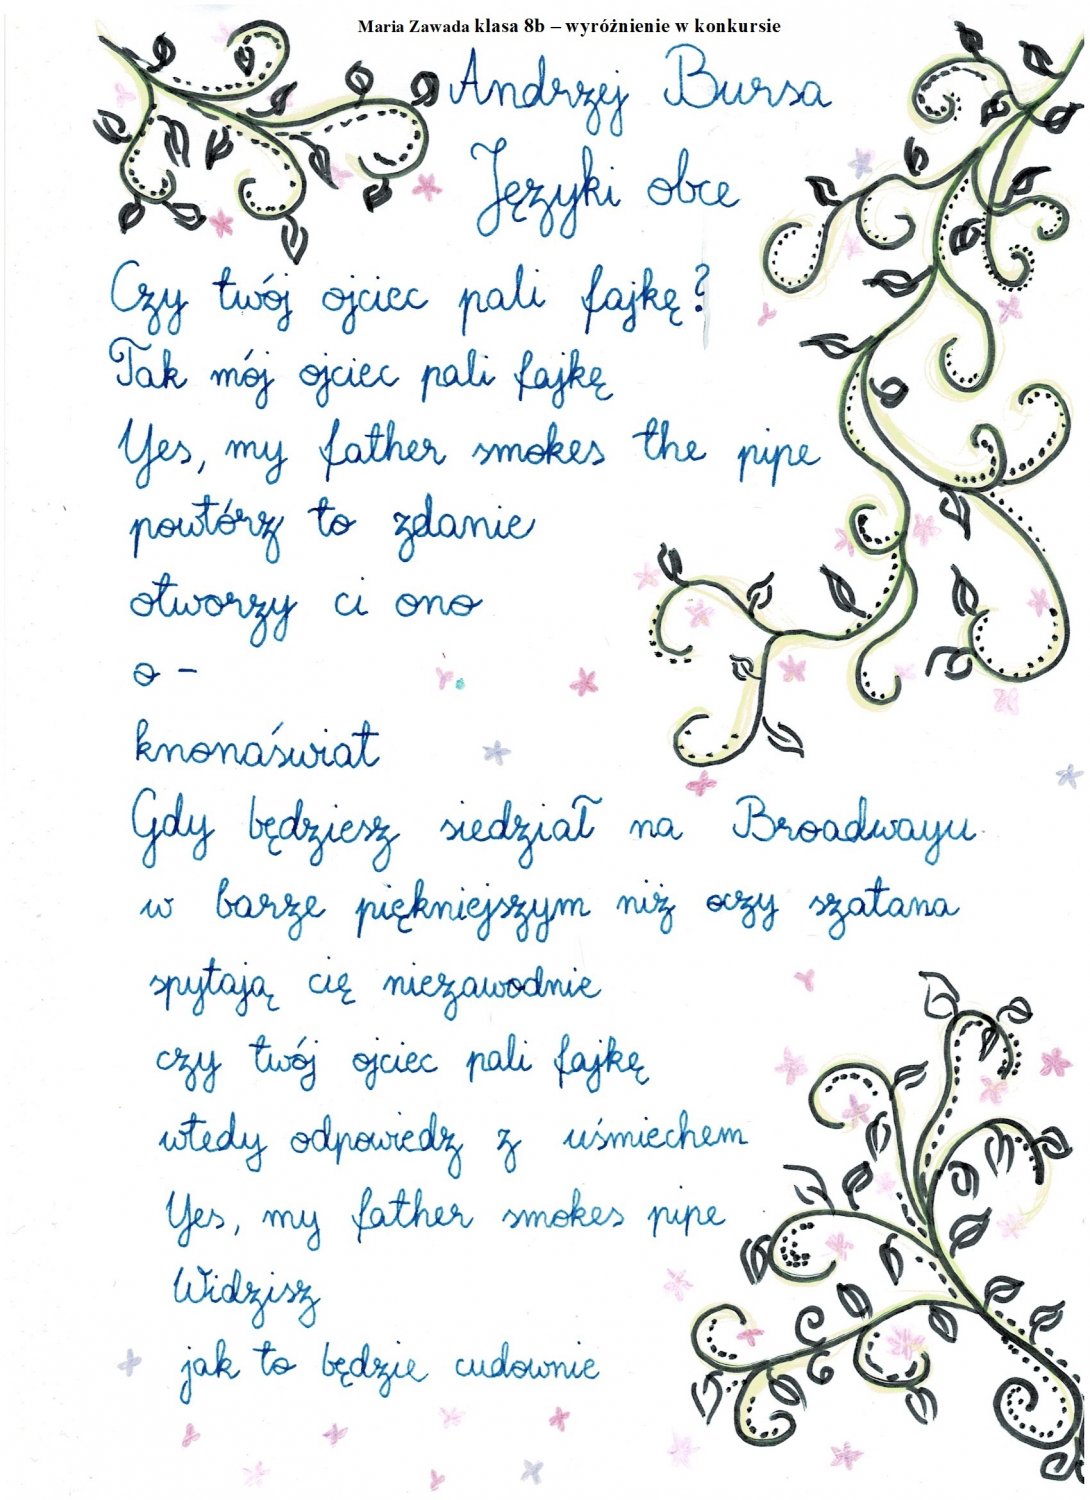 Maria Zawada klasa 8b – wyróżnienie w konkursie
Andrzej Bursa
Języki obce
Czy twój ojciec pali fajkę?
Tak mój ojciec pali fajkę
Yes, my father smokes the pipe
powtórz to zdanie
otworzy ci ono
o –
knonaświat
Gdy będziesz siedział na Broadwayu
w barze piękniejszym niż oczy szatana
spytają cię niezawodnie
czy twój ojciec pali fajkę
wtedy odpowiedz z uśmiechem
Yes, my father smokes pipe
Widzisz
jak to będzie cudownie